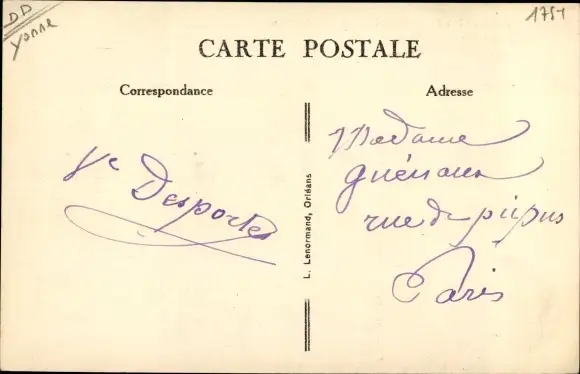 DD
Yonne
1751
CARTE POSTALE
Correspondance
Adresse
Ve Desportes
Madame
rue de picpus
Paris
L. Lenormand, Orléans